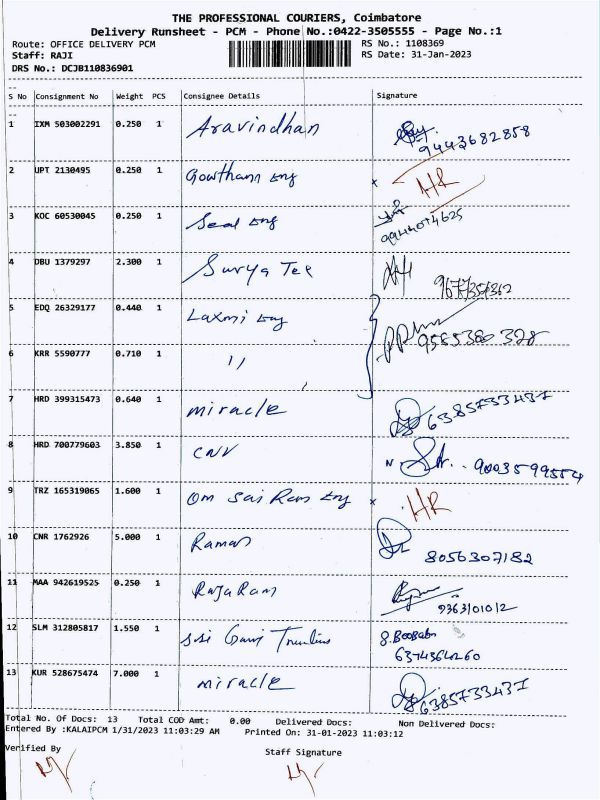 THE PROFESSIONAL COURIERS, Coimbatore
Delivery Runsheet - PCM - Phone No.:0422-3505555 - Page No.:1
Route: OFFICE DELIVERY PCM RS No.: 1108369
Staff: RAJI RS Date: 31-Jan-2023
DRS No.: DCJB110836901
S No Consignment No Weight PCS Consignee Details Signature
1 IXM 503002291 0.250 1 Aravindhan 9443682858
2 UPT 2130495 0.250 1 Gowtham Eng x HR
3 KOC 60530045 0.250 1 Seal Eng 9944074625
4 DBU 1379297 2.300 1 Surya Tee
5 EDQ 26329177 0.440 1 Laxmi Eng 9585380328
6 KRR 5590777 0.710 1 "
7 HRD 399315473 0.640 1 miracle 6385733437
8 HRD 700779603 3.850 1 CNV 9003599554
9 TRZ 165319065 1.600 1 Om Sai Ram Eng x HR
10 CNR 1762926 5.000 1 Raman 8056307182
11 MAA 942619525 0.250 1 RajaRam 9363101012
12 SLM 312805817 1.550 1 S.Boobabn
6374364260
13 KUR 528675474 7.000 1 miracle 6385733437
Total No. Of Docs: 13 Total COD Amt: 0.00 Delivered Docs: Non Delivered Docs:
Entered By :KALAIPCM 1/31/2023 11:03:29 AM Printed On: 31-01-2023 11:03:12
Verified By Staff Signature